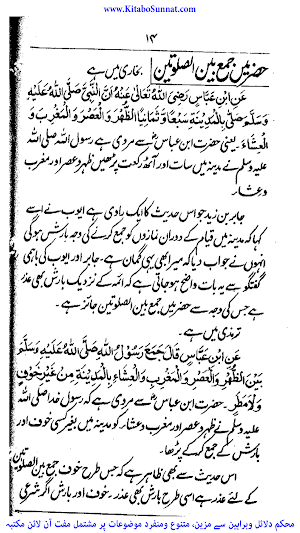 www.KitaboSunnat.com
۱۴
حضر میں جمع بین الصلوٰتین
بخاری میں ہے
عَنِ ابْنِ عَبَّاسٍ رَضِیَ اللّٰهُ تَعَالٰی عَنْهُ اَنَّ النَّبِیَّ صَلَّی اللّٰهُ عَلَیْهِ
وَسَلَّمَ صَلّٰی بِالْمَدِیْنَةِ سَبْعًا وَّثَمَانِیًا الظُّهْرَ وَالْعَصْرَ وَالْمَغْرِبَ وَ
الْعِشَاءَ یعنی حضرت ابن عباسؓ سے مروی ہے رسول اللہ صلی اللہ
علیہ وسلم نے مدینہ میں سات اور آٹھ رکعت پڑھیں ظہر و عصر اور مغرب
و عشاء
جابر بن زید جو اس حدیث کا ایک راوی ہے ایوب نے اسے
کہا کہ مدینہ میں قیام کے دوران نمازوں کو جمع کرنے کی وجہ بارش ہوگی
انہوں نے جواب دیا کہ میرا بھی یہی گمان ہے۔ جابر اور ایوب کی باہمی
گفتگو سے یہ بات واضح ہو جاتی ہے کہ ائمہ کے نزدیک بارش بھی عذر
ہے جس کی وجہ سے حضر میں جمع بین الصلوٰتین جائز ہے۔
ترمذی میں ہے۔
عَنِ ابْنِ عَبَّاسٍ قَالَ جَمَعَ رَسُوْلُ اللّٰهِ صَلَّی اللّٰهُ عَلَیْهِ وَسَلَّمَ
بَیْنَ الظُّهْرِ وَالْعَصْرِ وَالْمَغْرِبِ وَالْعِشَاءِ بِالْمَدِیْنَةِ مِنْ غَیْرِ خَوْفٍ
وَلَا مَطَرٍ۔ حضرت ابن عباسؓ سے مروی ہے کہ رسول خدا صلی اللہ
علیہ وسلم نے ظہر و عصر اور مغرب و عشاء کو مدینہ میں بغیر کسی خوف اور
بارش کے جمع کر کے پڑھا۔
اس حدیث سے بھی ظاہر ہے کہ جس طرح خوف جمع بین الصلوٰتین
کے لئے عذر ہے اسی طرح بارش بھی عذر۔ خوف اور بارش اگر شرعی
محکم دلائل وبراہین سے مزین، متنوع ومنفرد موضوعات پر مشتمل مفت آن لائن مکتبہ